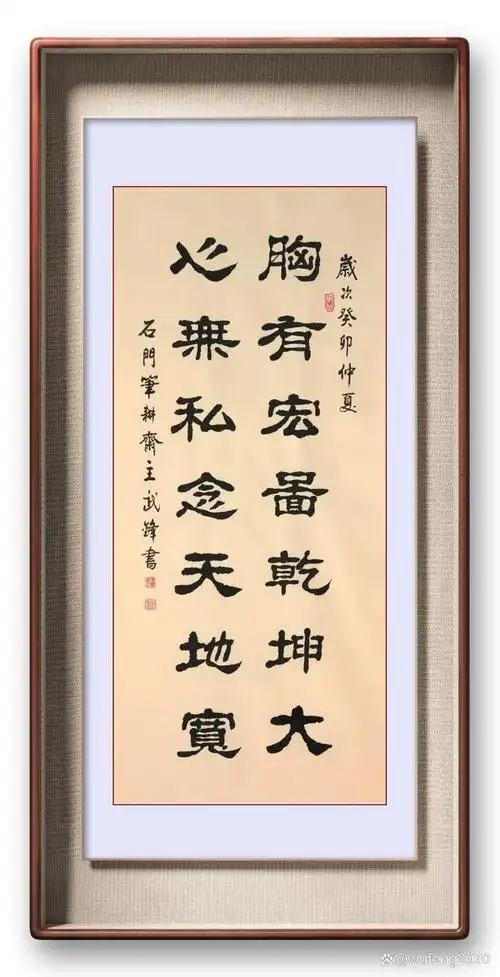 歲次癸卯仲夏
胸有宏啚乾坤大
心無私念天地寬
石門筆耕齋主武鋒書
@wufeng2020